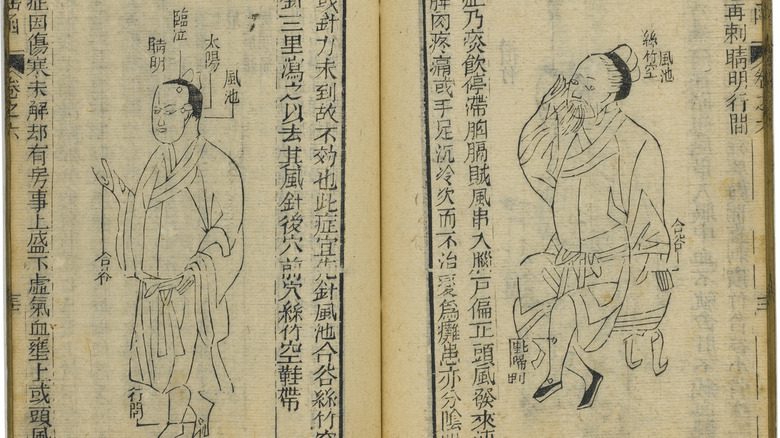 再刺睛明行間
卷之六
風池
絲竹空
合谷
症乃痰飲停滯胸膈賊風串入腦戶偏正頭風發來
肉疼痛或手足沉冷久而不治變為癱患亦分陰
或針力未到故不効也此症宜先針風池合谷絲竹空
針三里瀉之以去其風針後穴前穴絲竹空鞋帶
風池
太陽
臨泣
睛明
合谷
行間
卷之六
症因傷寒未解却有房事上盛下虛氣血壅上或頭風